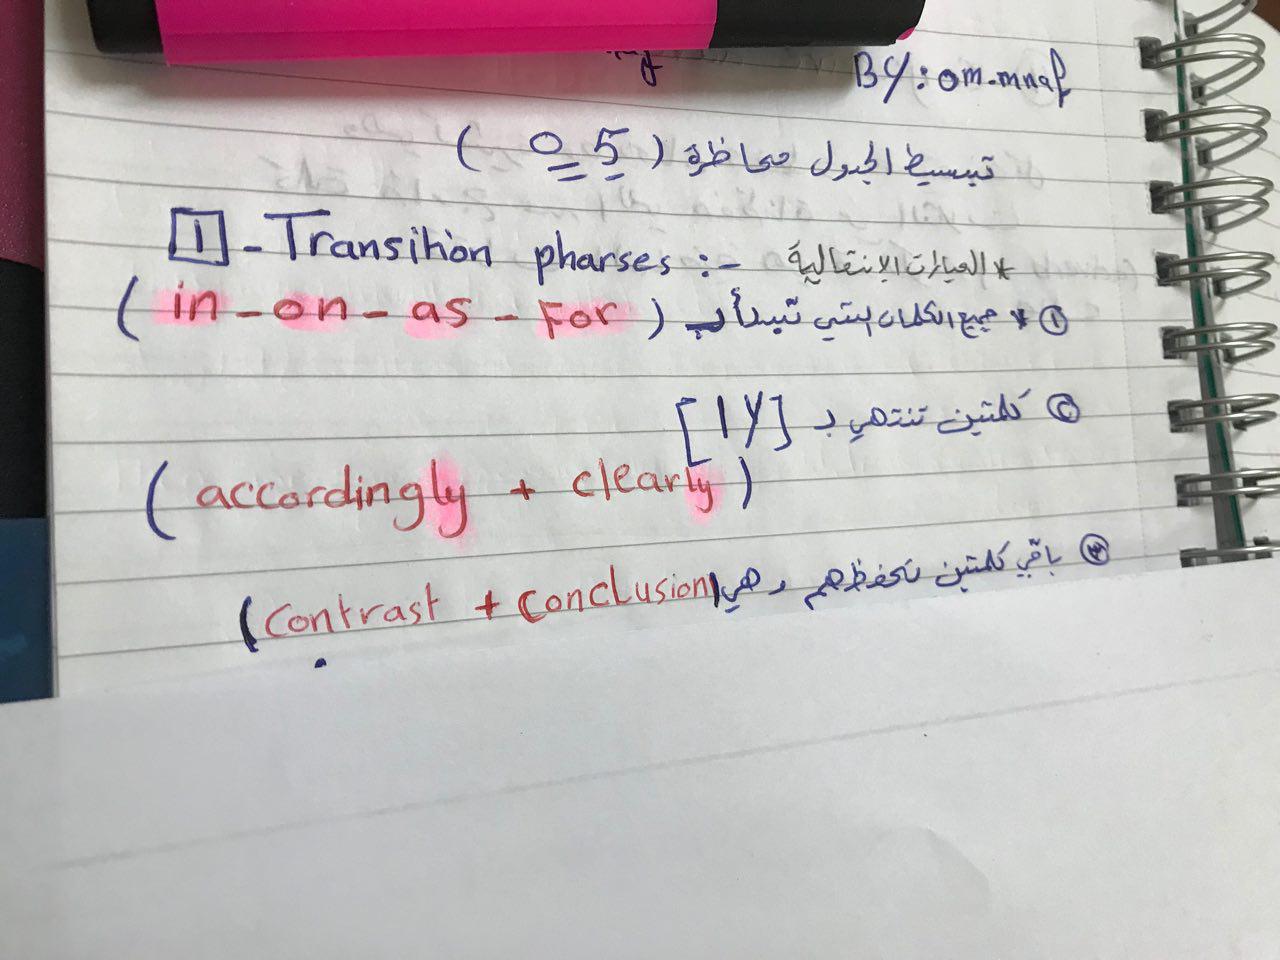 By: om.mnaf
تبسيط الجدول محاظرة ( 05 )
1 - Transition pharses :- * العبارات الانتقالية
① * جميع الكلمات التي تبدأ بـ ( in - on - as - For )
② كلمتين تنتهي بـ [ly]
( accordingly + clearly )
③ باقي كلمتين نحفظهم وهي (contrast + conclusion)